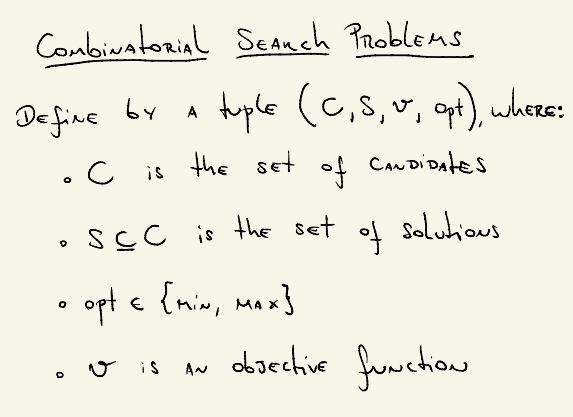 Combinatorial Search Problems
Define by a tuple (C, S, v, opt), where:
• C is the set of candidates
• S ⊆ C is the set of solutions
• opt ∈ {min, max}
• v is an objective function